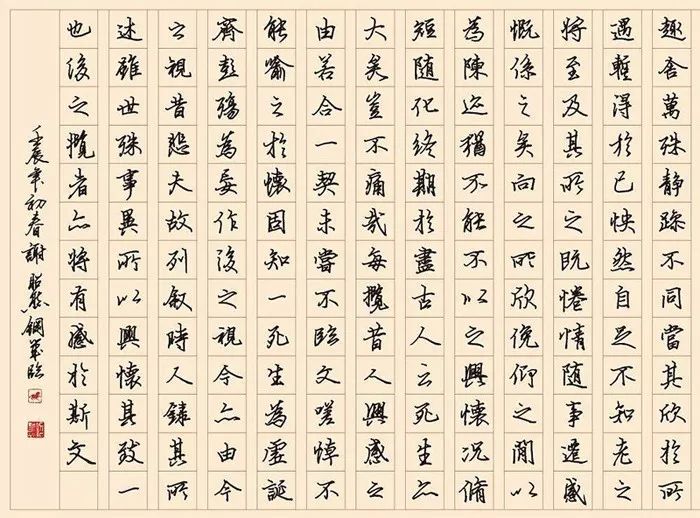 趣舍萬殊静躁不同當其欣於所
遇暫得於己怏然自足不知老之
將至及其所之既惓情随事遷感
慨係之矣向之所欣俛仰之間以
為陳迹猶不能不以之興懷況脩
短随化終期於盡古人云死生亦
大矣豈不痛哉每攬昔人興感之
由若合一契未嘗不臨文嗟悼不
能喻之於懷固知一死生為虛誕
齊彭殤為妄作後之視今亦由今
之視昔悲夫故列叙時人錄其所
述雖世殊事異所以興懷其致一
也後之攬者亦將有感於斯文
壬辰年初春謝昭鋼筆臨